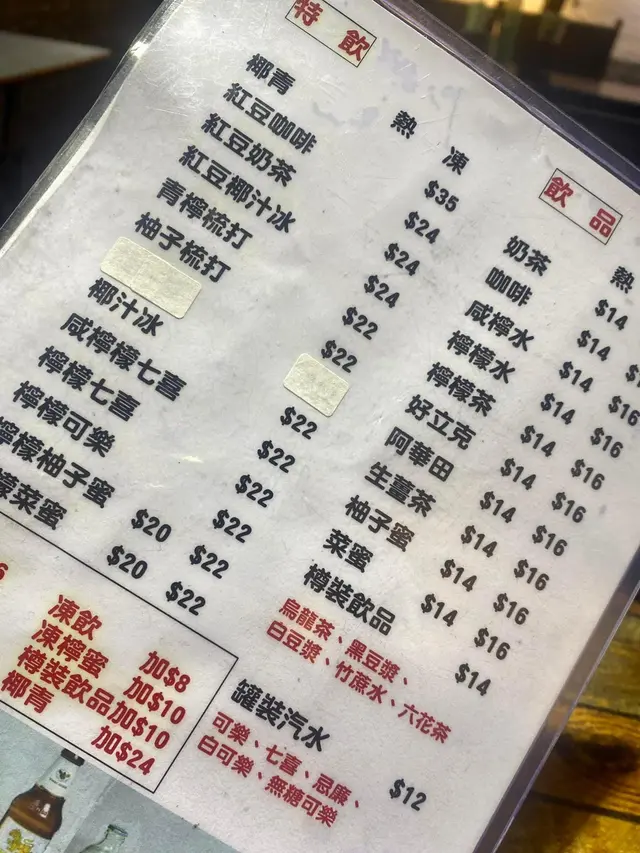 特飲 熱 凍
椰青 $35
紅豆咖啡 $24
紅豆奶茶 $24
紅豆椰汁冰 $24
青檸梳打 $22
柚子梳打 $22
椰汁冰 $22
咸檸檬七喜 $22
檸檬七喜 $22
檸檬可樂 $22
檸檬柚子蜜 $20 $22
檬菜蜜 $20 $22
凍飲 加$8
凍檸蜜 加$10
樽裝飲品加$10
椰青 加$24
飲品 熱
奶茶 $14
咖啡 $14
咸檸水 $14 $16
檸檬水 $14 $16
檸檬茶 $14 $16
好立克 $14 $16
阿華田 $14 $16
生薑茶 $14 $16
柚子蜜 $14 $16
菜蜜 $14 $16
樽裝飲品 $14
烏龍茶、黑豆漿、
白豆漿、竹蔗水、六花茶
罐裝汽水 $12
可樂、七喜、忌廉、
白可樂、無糖可樂